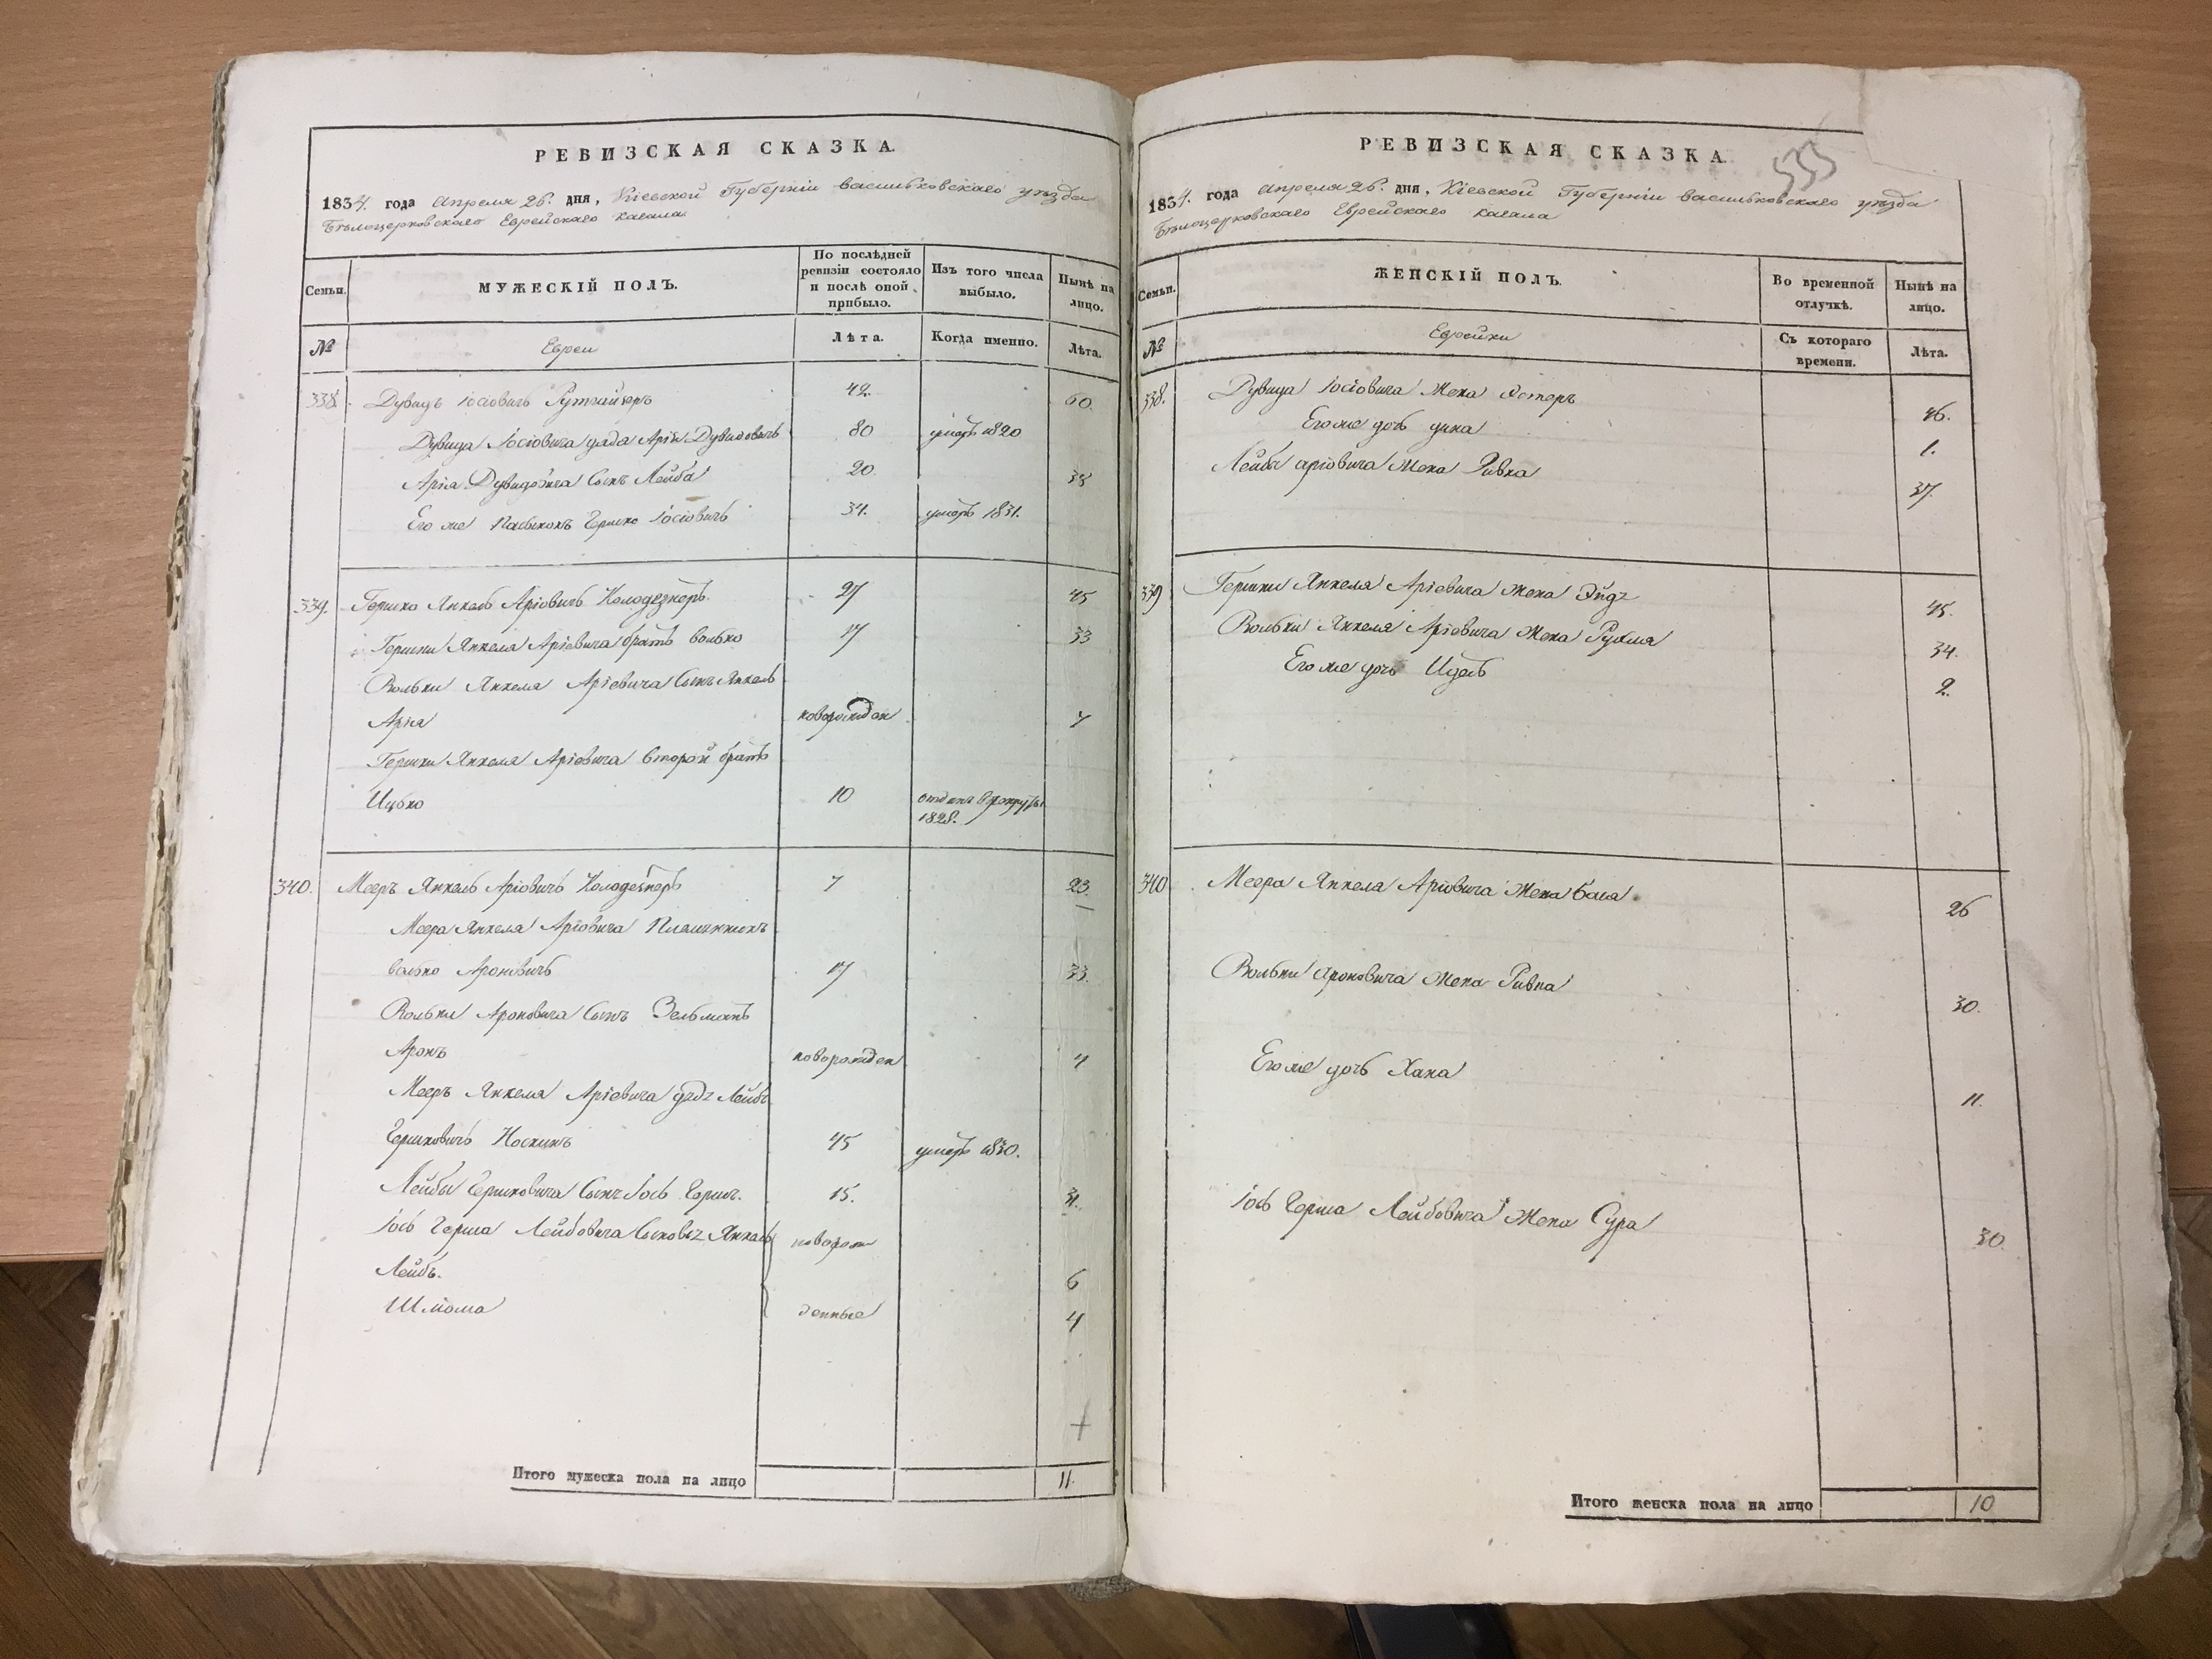 РЕВИЗСКАЯ СКАЗКА.
1834. года Апреля 26. дня, Кіевской Губерніи васильковскаго уѣзда
Бѣлоцерковскаго Еврейскаго кагала
Семьи.
МУЖЕСКІЙ ПОЛЪ.
По послѣдней ревизіи состояло и послѣ оной прибыло.
Изъ того числа выбыло.
Нынѣ на лицо.
№
Евреи
Лѣта.
Когда именно.
Лѣта.
338. Дувидъ Іосіовичъ 42. 60.
Дувида Іосіовича дядя Арія Дувидовичъ 80 умеръ 1820
Арія Дувидовича Сынъ Лейба 20. 38
Его же Гершко Іосіовичъ 34. умеръ 1831.
339. Гершко Янкель Аріовичъ Колодезнеръ. 27 45
Гершки Янкеля Аріевича братъ волько 17 33
Вольки Янкеля Аріевича Сынъ Янкель
Арія новорожден 7
Гершки Янкеля Аріевича второй братъ
Ицько 10 отданъ в рекруты 1828.
340. Мееръ Янкель Аріовичъ Колодезнеръ 7 23.
Меера Янкеля Аріовича Племянникъ
волько Ароновичъ 17 33.
Вольки Ароновича Сынъ Зельманъ
Аронъ новорожден 4
Мееръ Янкеля Аріевича дядя Лейба
Гершковичъ 45 умеръ 1830.
Лейбы Гершковича Сынъ Іось Герш. 15. 31.
Іось Герша Лейбовича Сыновья Янкель новорож
Лейбъ. 6
Шлиома денные 4
Итого мужеска пола на лицо 11.
РЕВИЗСКАЯ СКАЗКА.
533
1834. года Апреля 26. дня, Кіевской Губерніи васильковскаго уѣзда
Бѣлоцерковскаго Еврейскаго кагала
Семьи.
ЖЕНСКІЙ ПОЛЪ.
Во временной отлучкѣ.
Нынѣ на лицо.
№
Еврейки
Съ котораго времени.
Лѣта.
338. Дувида Іосіовича Жена Эстеръ 46.
Его же дочь 1.
Лейбы аріовича Жена Ривка 37.
339 Гершки Янкеля Аріевича жена 45.
Вольки Янкеля Аріевича Жена Рухля 34.
Его же дочь Идесъ 2.
340 Меера Янкеля Аріовича Жена Бася 26
Вольки ароновича Жена Ривка 30.
Его же дочь Хана 11.
Іось Герша Лейбовича Жена Сура 30.
Итого женска пола на лицо 10